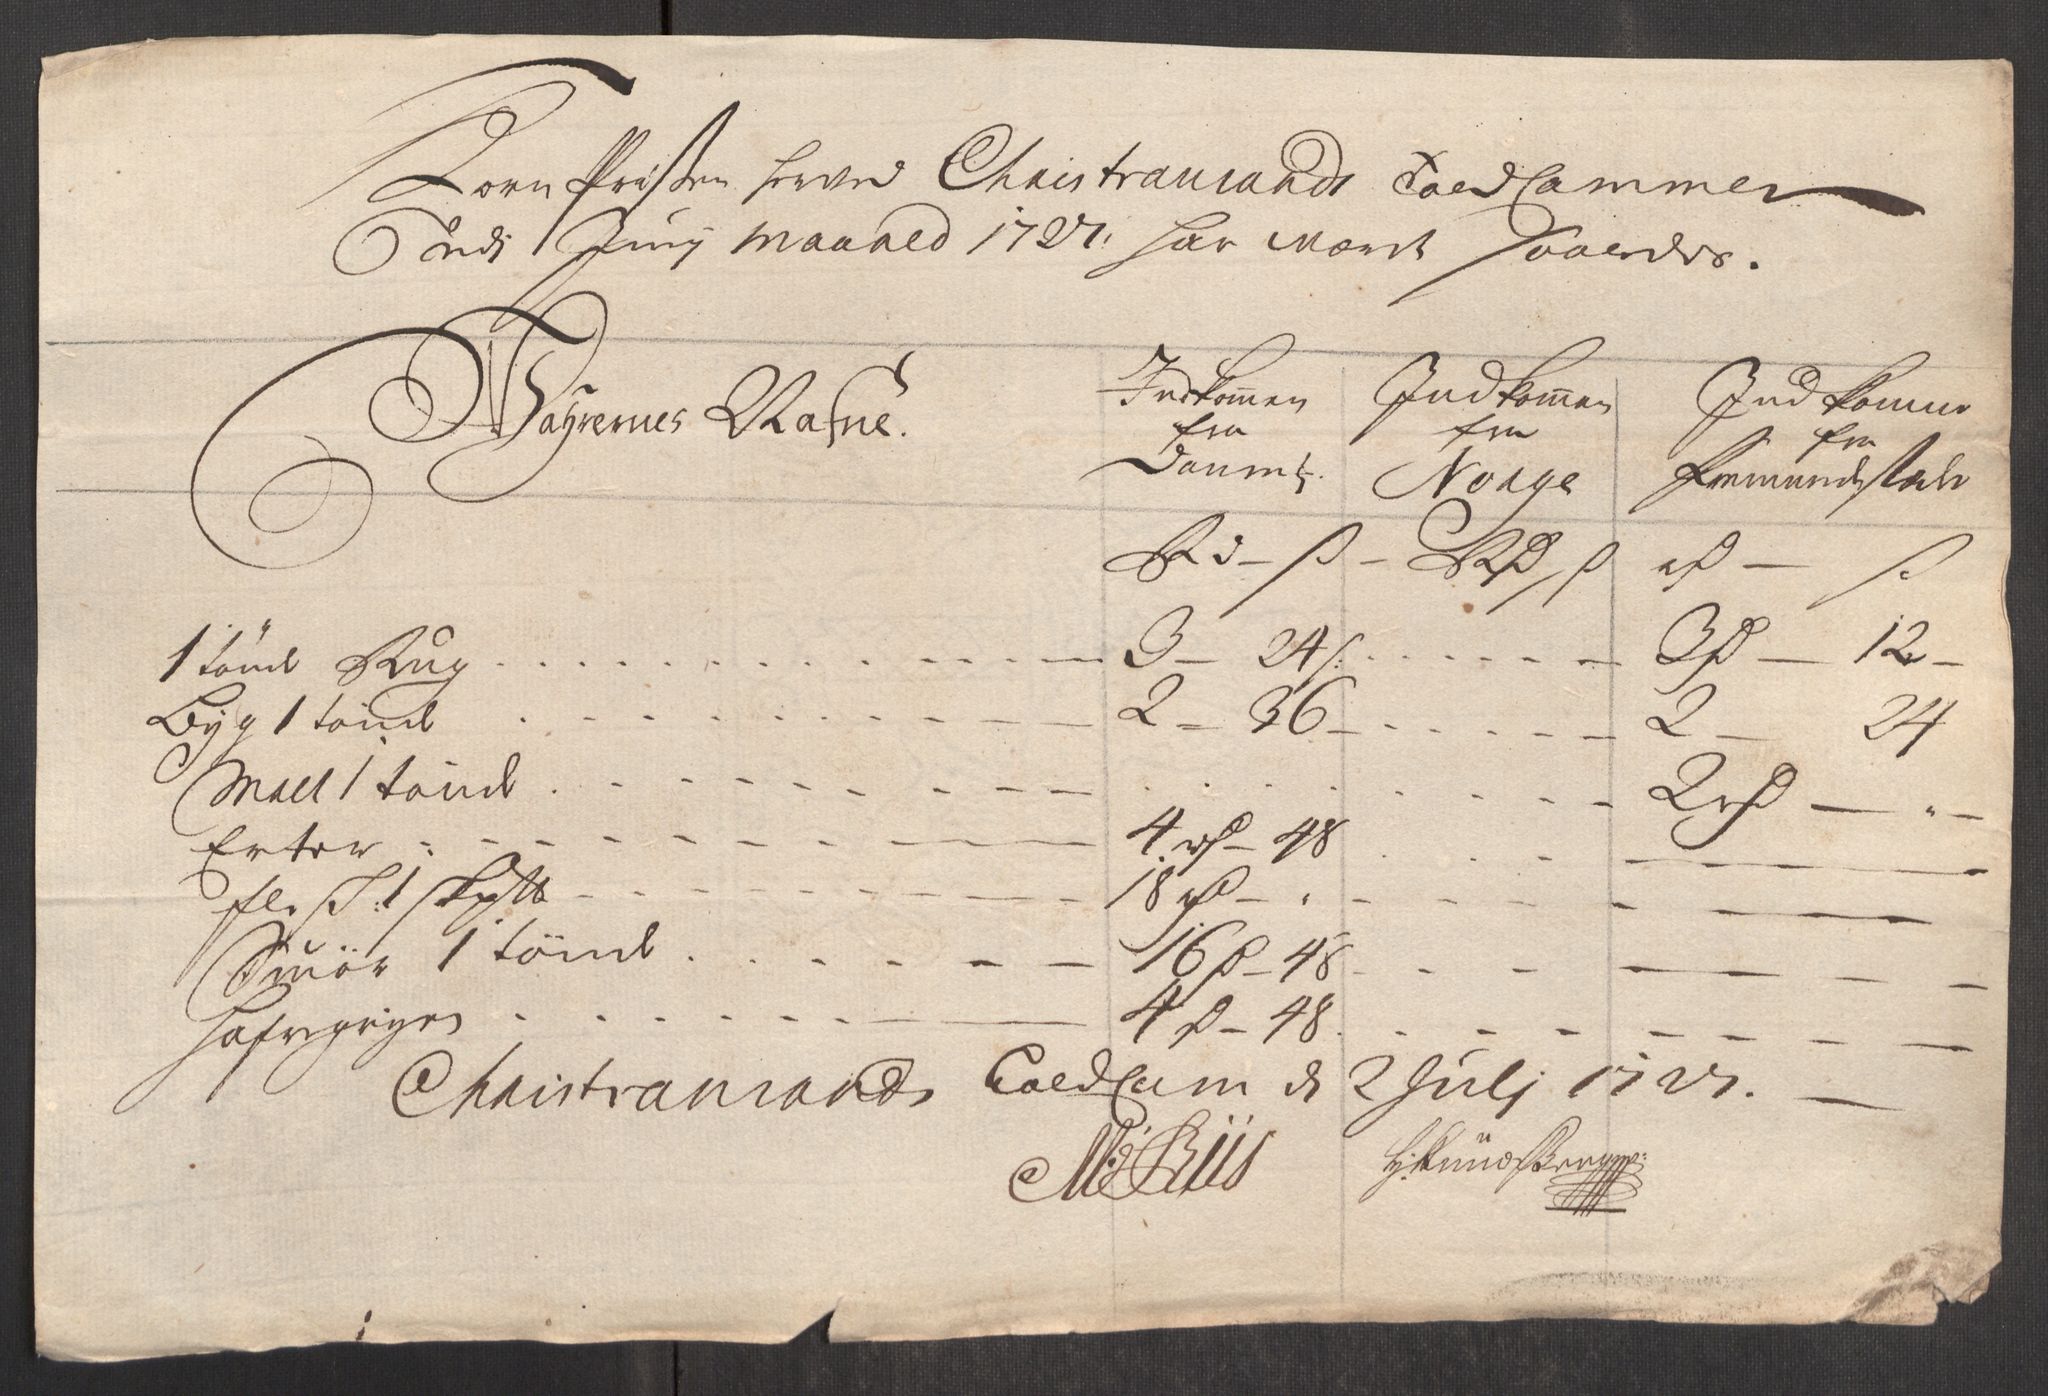 Korn Prißen herved Christiansands Toldkammer
udi Junj Maaned 1727. har været saaledes.
Vahrernes Nafne. Indkommen fra Danmk. Indkommen fra Norge Indkommen fra fremmendesteder
Rd – ß – Rd ß rd – ß
1 tönde Rug 3 – 24 ß. 3 d – 12 –
Byg 1 tönde 2 – 36 2 – 24
Malt 1 tönde 2 rd – „ –
Erter 4 rd – 48
flesk 1 skpd 18 rd – „
Smör 1 tönde 16 d – 48
hafregryn 4 d – 48
Christiansands Toldkam d 2 Julj 1727.
M: Riis